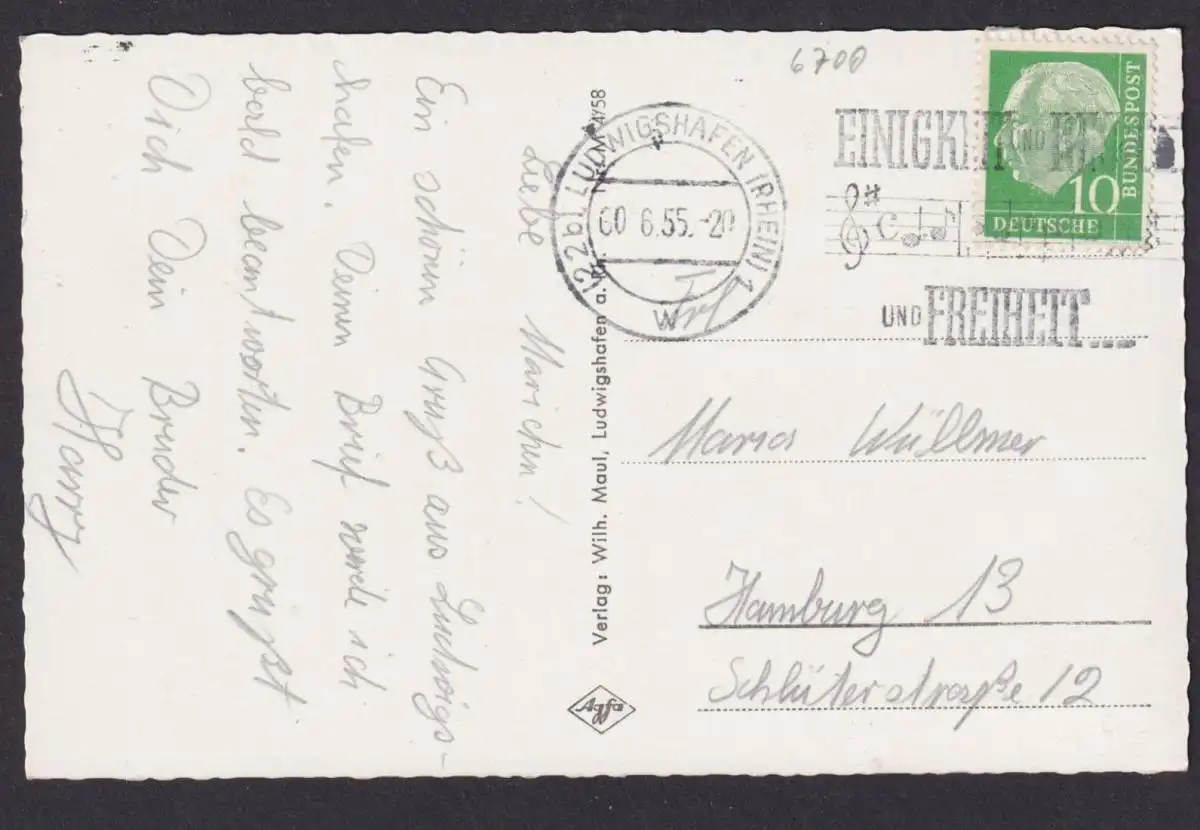 6700
Liebe Mariechen!
Ein schönen Gruß aus Ludwigs-
hafen. Deinen Brief werde ich
bald beantworten. Es grüßt
Dich Dein Bruder
Harry
Verlag: Wilh. Maul, Ludwigshafen a. Rh.
4/58
Agfa
(22b) LUDWIGSHAFEN (RHEIN) 1
6.55.-20
W
EINIGKEIT UND
UND FREIHEIT...
DEUTSCHE
BUNDESPOST
10
Maria Wüllmer
Hamburg 13
Schlüterstraße 12